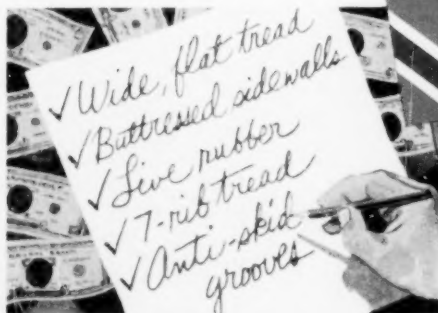 ✓ Wide, flat tread
✓ Buttressed sidewalls
✓ Live rubber
✓ 7-rib tread
✓ Anti-skid
grooves